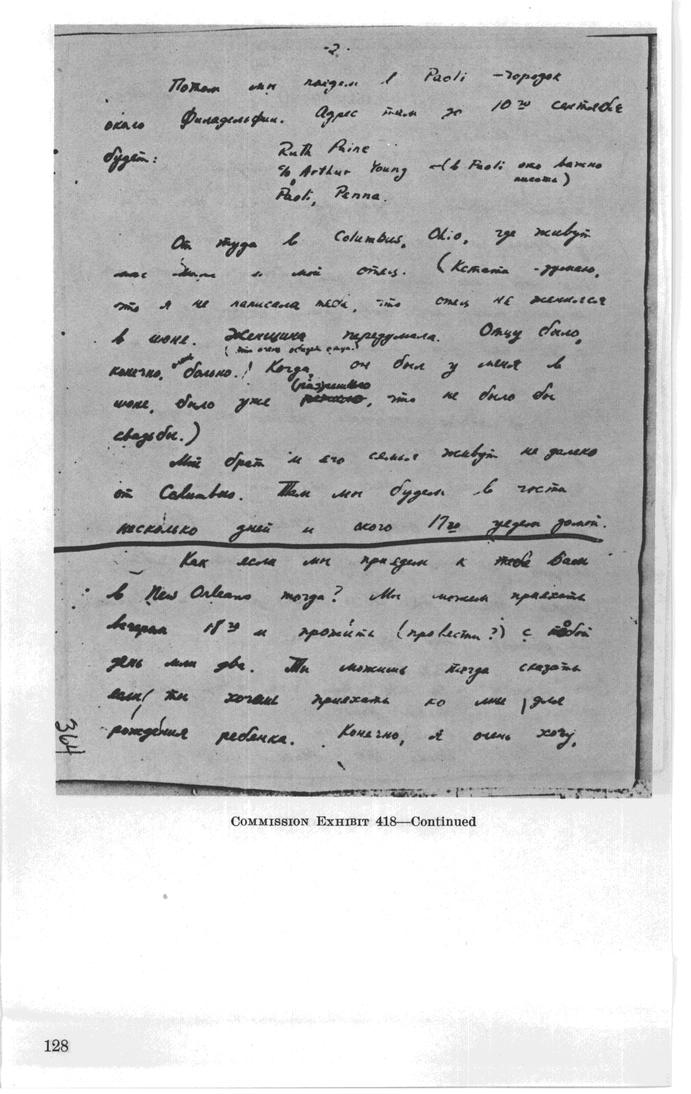 -2.
Потом мы поедем в Paoli - городок
около Филадельфии. Адрес там до 10го сентябе
будет:
Ruth Paine
c/o Arthur Young - (в Paoli оно важно
писать)
Paoli, Penna.
От туда в Columbus, Ohio, где живут
моя мама и мой отец. (Кстати - думаю,
что я не написала тебе, что отец не женился
в июне. Женщина передумала. Отцу было,
конечно, больно.! Когда, он был у меня в
(разрешено
июне, было уже решено, что не было бы
свадьбы.)
Мой брат и его семья живут не далеко
от Columbus. Там мы будем в гости
несколько дней и около 17го уедем домой.
Как если мы приедем к тебе Вам
в New Orleans тогда? Мы можем приехать
вечером 18го и прожить (провести?) с тобой
день или два. Ты можешь тогда сказать
если ты хочешь приехать ко мне, для
рождения ребенка. Конечно, я очень хочу,
364
COMMISSION EXHIBIT 418—Continued
128